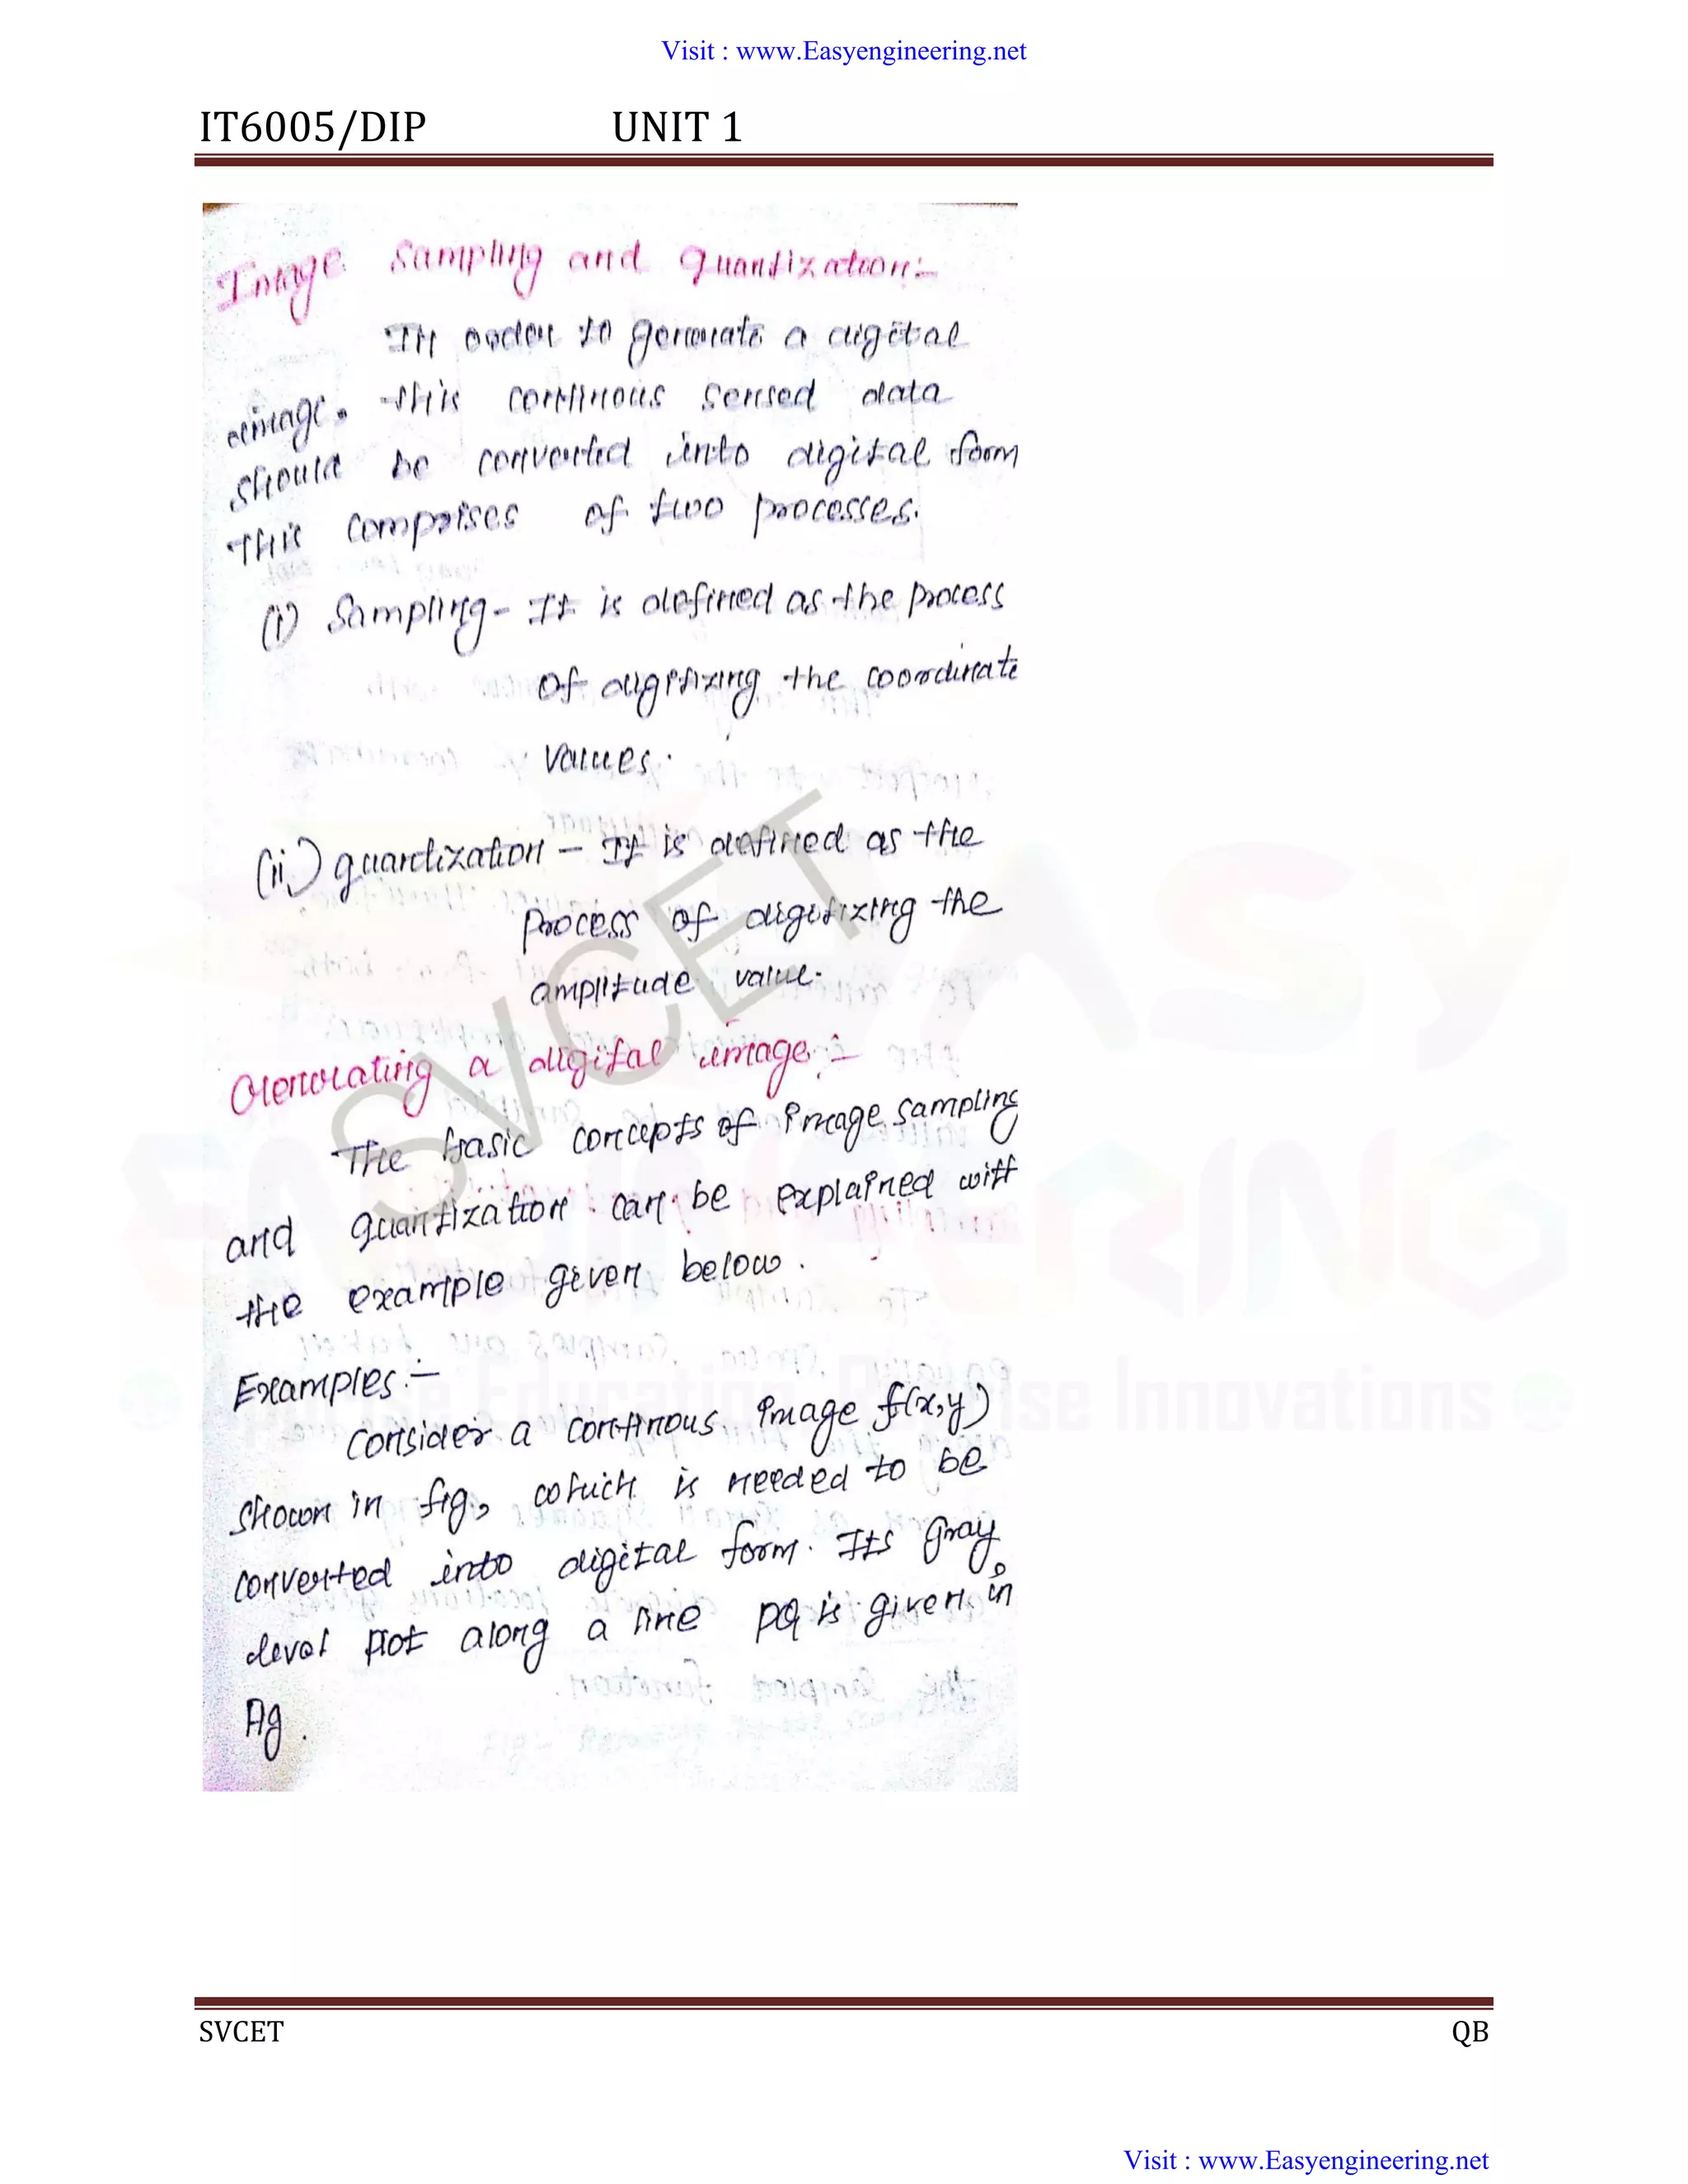 Visit : www.Easyengineering.net
IT6005/DIP UNIT 1
Image sampling and quantization:-
In order to generate a digital
image, this continous sensed data
should be converted into digital form
This comprises of two processes.
(i) Sampling - It is defined as the process
of digitizing the coordinate
values.
(ii) quantization - It is defined as the
process of digitizing the
amplitude value.
Generating a digital image :-
The basic concepts of image sampling
and quantization can be explained with
the example given below.
Examples :-
Consider a continous image f(x,y)
shown in fig, which is needed to be
converted into digital form. Its gray
level plot along a line PQ is given in
fig.
SVCET
EASY
ENGINEERING
SVCET QB
Visit : www.Easyengineering.net